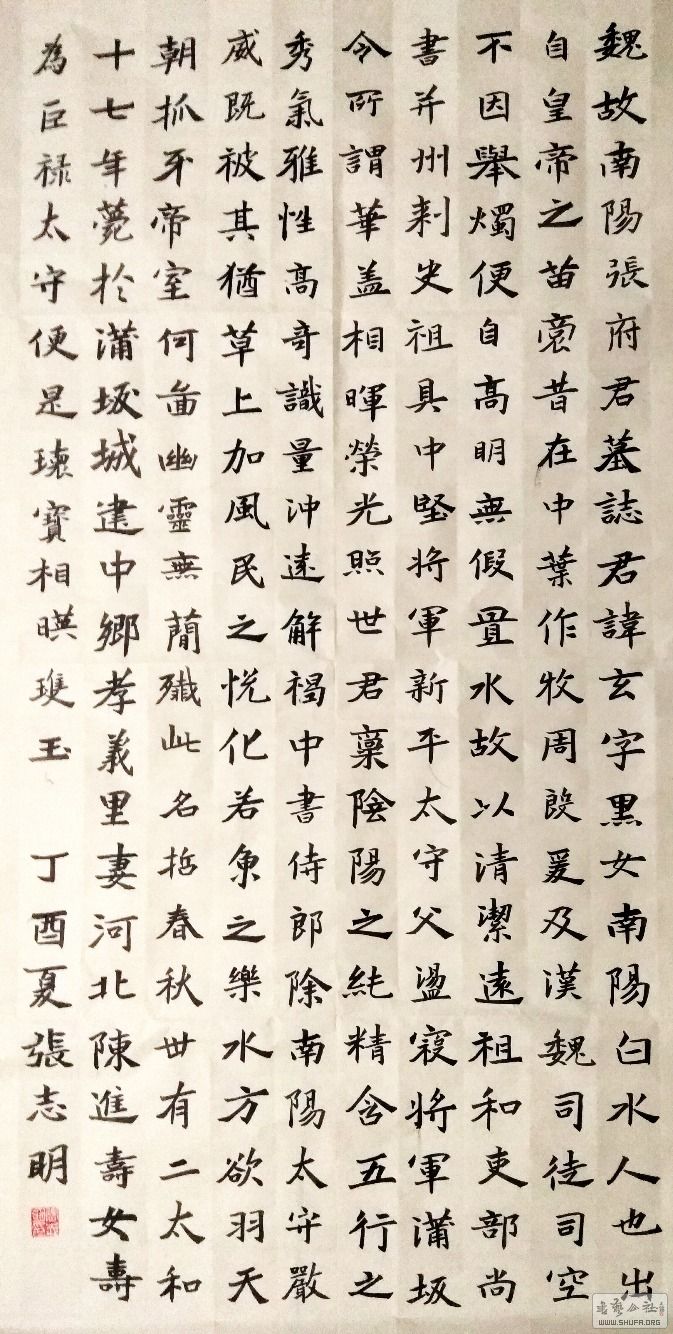 魏故南陽張府君墓誌君諱玄字黑女南陽白水人也出
自皇帝之苗裔昔在中葉作牧周殷爰及漢魏司徒司空
不因舉燭便自高明無假置水故以清潔遠祖和吏部尚
書并州刺史祖具中堅將軍新平太守父盪寇將軍蒲坂
令所謂華盖相暉榮光照世君稟陰陽之純精含五行之
秀氣雅性高奇識量沖遠解褐中書侍郎除南陽太守嚴
威既被其猶草上加風民之悅化若魚之樂水方欲羽天
朝抓牙帝室何啚幽靈無蕳殲此名哲春秋卅有二太和
十七年薨於蒲坂城建中鄉孝義里妻河北陳進壽女壽
為巨禄太守便是瓌寶相暎瓊玉 丁酉夏張志明
書藝公社
WWW.SHUFA.ORG